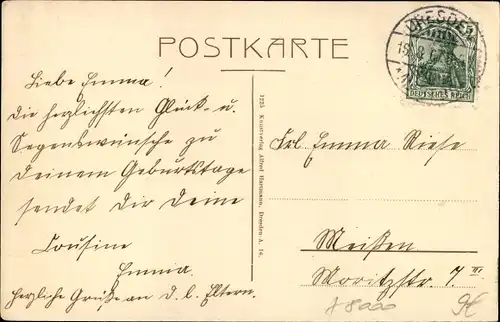 POSTKARTE
DRESDEN
DEUTSCHES REICH
Liebe Emma!
Die herzlichsten Glück- u.
Segenswünsche zu
Deinem Geburtstage
sendet Dir Deine
Cousine
Emmia.
Herzliche Grüße an d. l. Eltern.
1225 Kunstverlag Alfred Hartmann, Dresden-A. 16.
Frl Emma Riese
Meißen
Moritzstr. 7 III
A8000